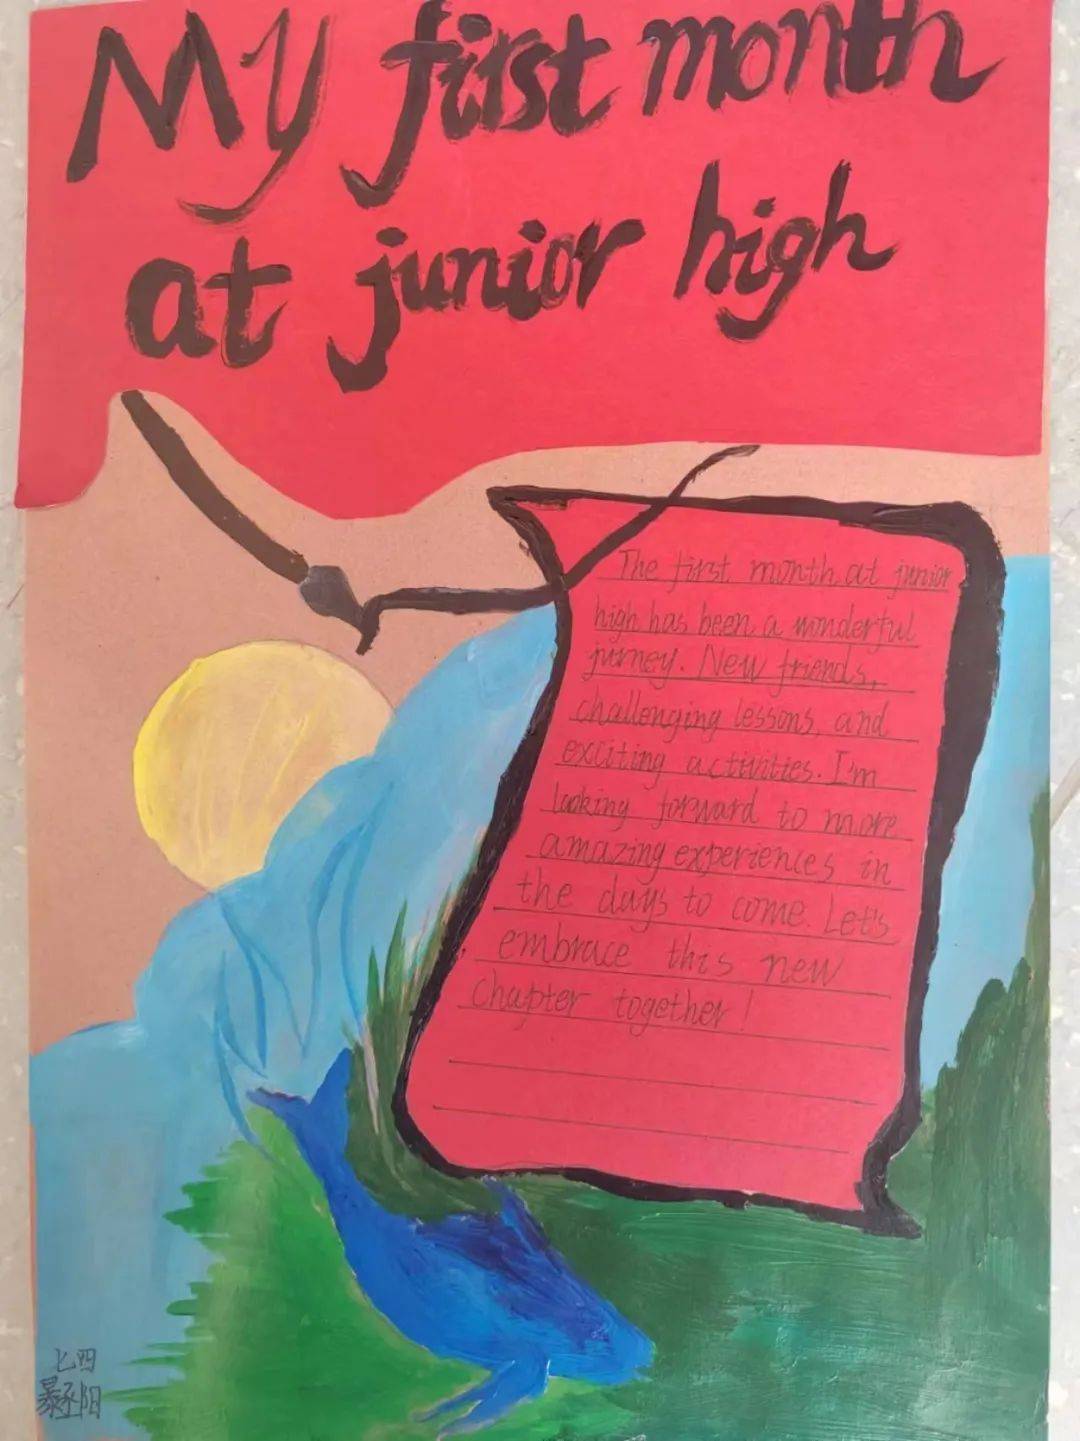 My first month
at junior high
The first month at junior
high has been a wonderful
jurney. New friends,
challenging lessons, and
exciting activities. I'm
looking forward to more
amazing experiences in
the days to come. Let's
embrace this new
chapter together!
七四
暴丞阳